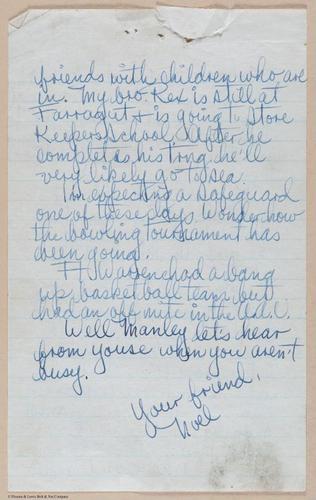 friends with children who are
in. My bro. Rex is still at
Farragut & is going to Store
Keepers School. After he
completes his trng. he'll
very likely go to sea.
I'm expecting a Safeguard
one of these days. Wonder how
the bowling tournament has
been going.
Ft. Warren had a bang
up basketball team but
had an off nite in the A.A.U.
Well Manley let's hear
from youse when you aren't
busy.
Your friend,
Noel